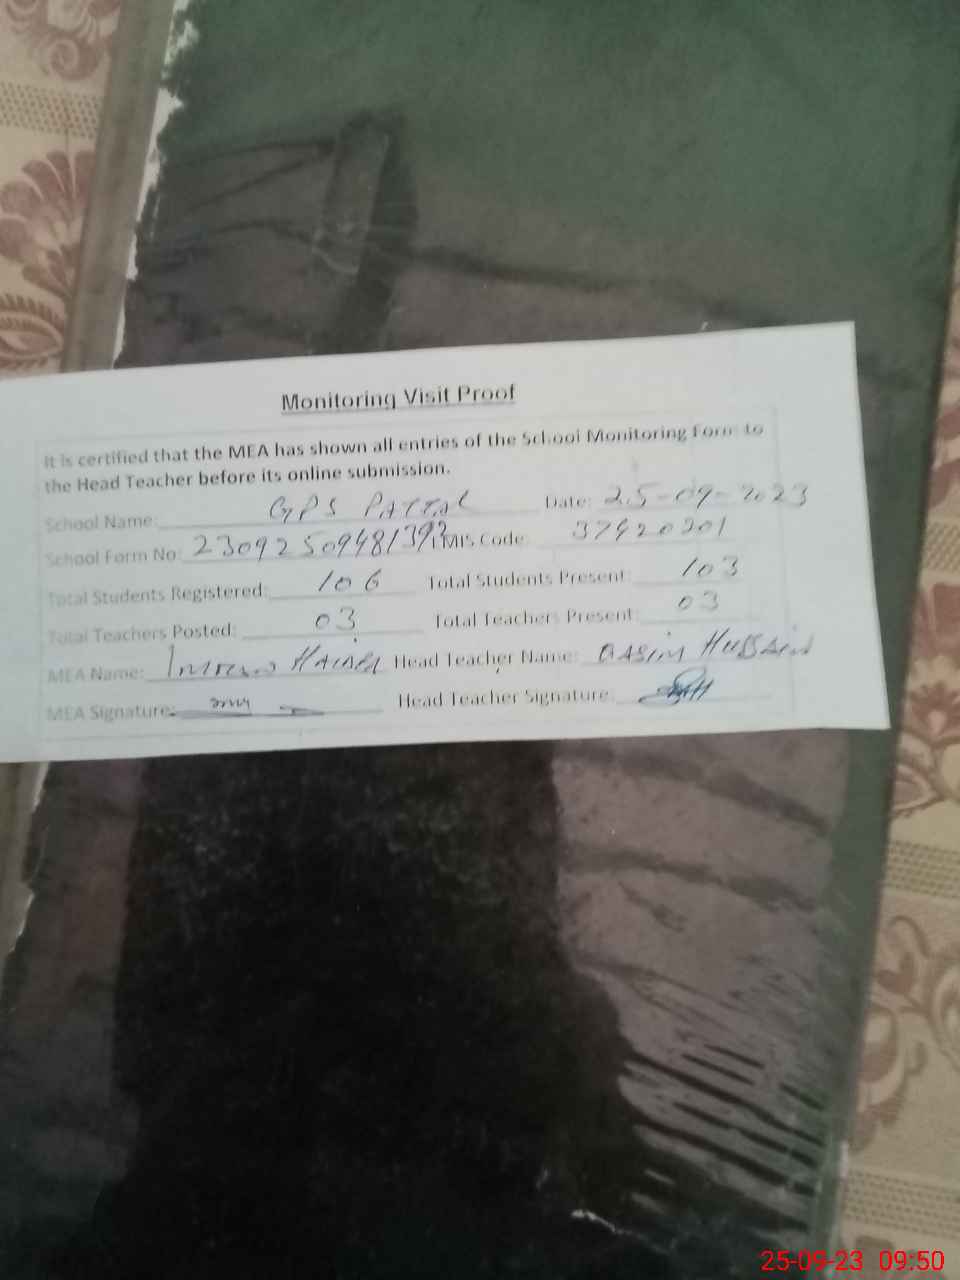 Monitoring Visit Proof
It is certified that the MEA has shown all entries of the School Monitoring Form to
the Head Teacher before its online submission.
School Name: GPS Date: 25-09-2023
School Form No: 23092509481393 EMIS Code: 37420201
Total Students Registered: 106 Total Students Present: 103
Total Teachers Posted: 03 Total Teachers Present: 03
MEA Name: Head Teacher Name: Qasim Hussain
MEA Signature: Head Teacher Signature:
25-09-23 09:50